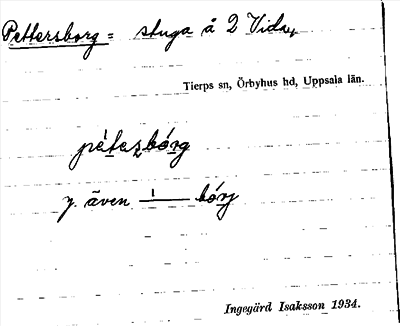 Pettersborg = stuga å 2 Vida,
Tierps sn, Örbyhus hd, Uppsala län.
pèteʂbórg
y. även ——— bórj
Ingegärd Isaksson 1934.